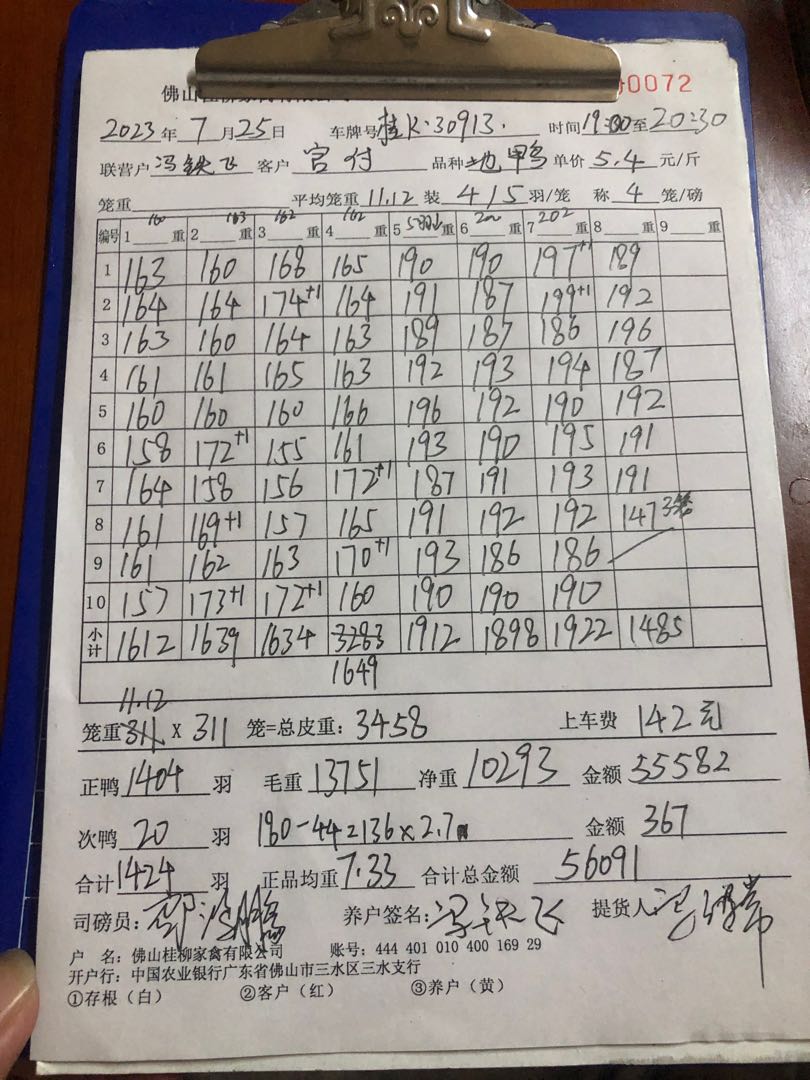 佛山桂柳家禽有限公司 0072
2023年7月25日 车牌号桂K·30913. 时间19:00至20:30
联营户 冯铁飞 客户 宫付 品种 地鸭 单价 5.4 元/斤
笼重 平均笼重 11.12 装 4 15 羽/笼 称 4 笼/磅
160 163 162 162 200 202
编号 1 重 2 重 3 重 4 重 5 重 6 重 7 重 8 重 9 重
1 163 160 168 165 190 190 197+1 189
2 164 164 174+1 164 191 187 199+1 192
3 163 160 164 163 189 187 186 196
4 161 161 165 163 192 193 194 187
5 160 160 160 166 196 192 190 192
6 158 172+1 155 161 193 190 195 191
7 164 158 156 172+1 187 191 193 191
8 161 169+1 157 165 191 192 192 147 3笼
9 161 162 163 170+1 193 186 186
10 157 173+1 172+1 160 190 190 190
小计 1612 1639 1634 3283 1912 1898 1922 1485
1649
11.12
笼重 311 X 311 笼=总皮重：3458 上车费 142元
正鸭 1404 羽 毛重 13751 净重 10293 金额 55582
次鸭 20 羽 180-44=136×2.7 金额 367
合计 1424 羽 正品均重 7.33 合计总金额 56091
司磅员： 养户签名：冯铁飞 提货人：
户 名：佛山桂柳家禽有限公司 账号：444 401 010 400 169 29
开户行：中国农业银行广东省佛山市三水区三水支行
①存根（白） ②客户（红） ③养户（黄）